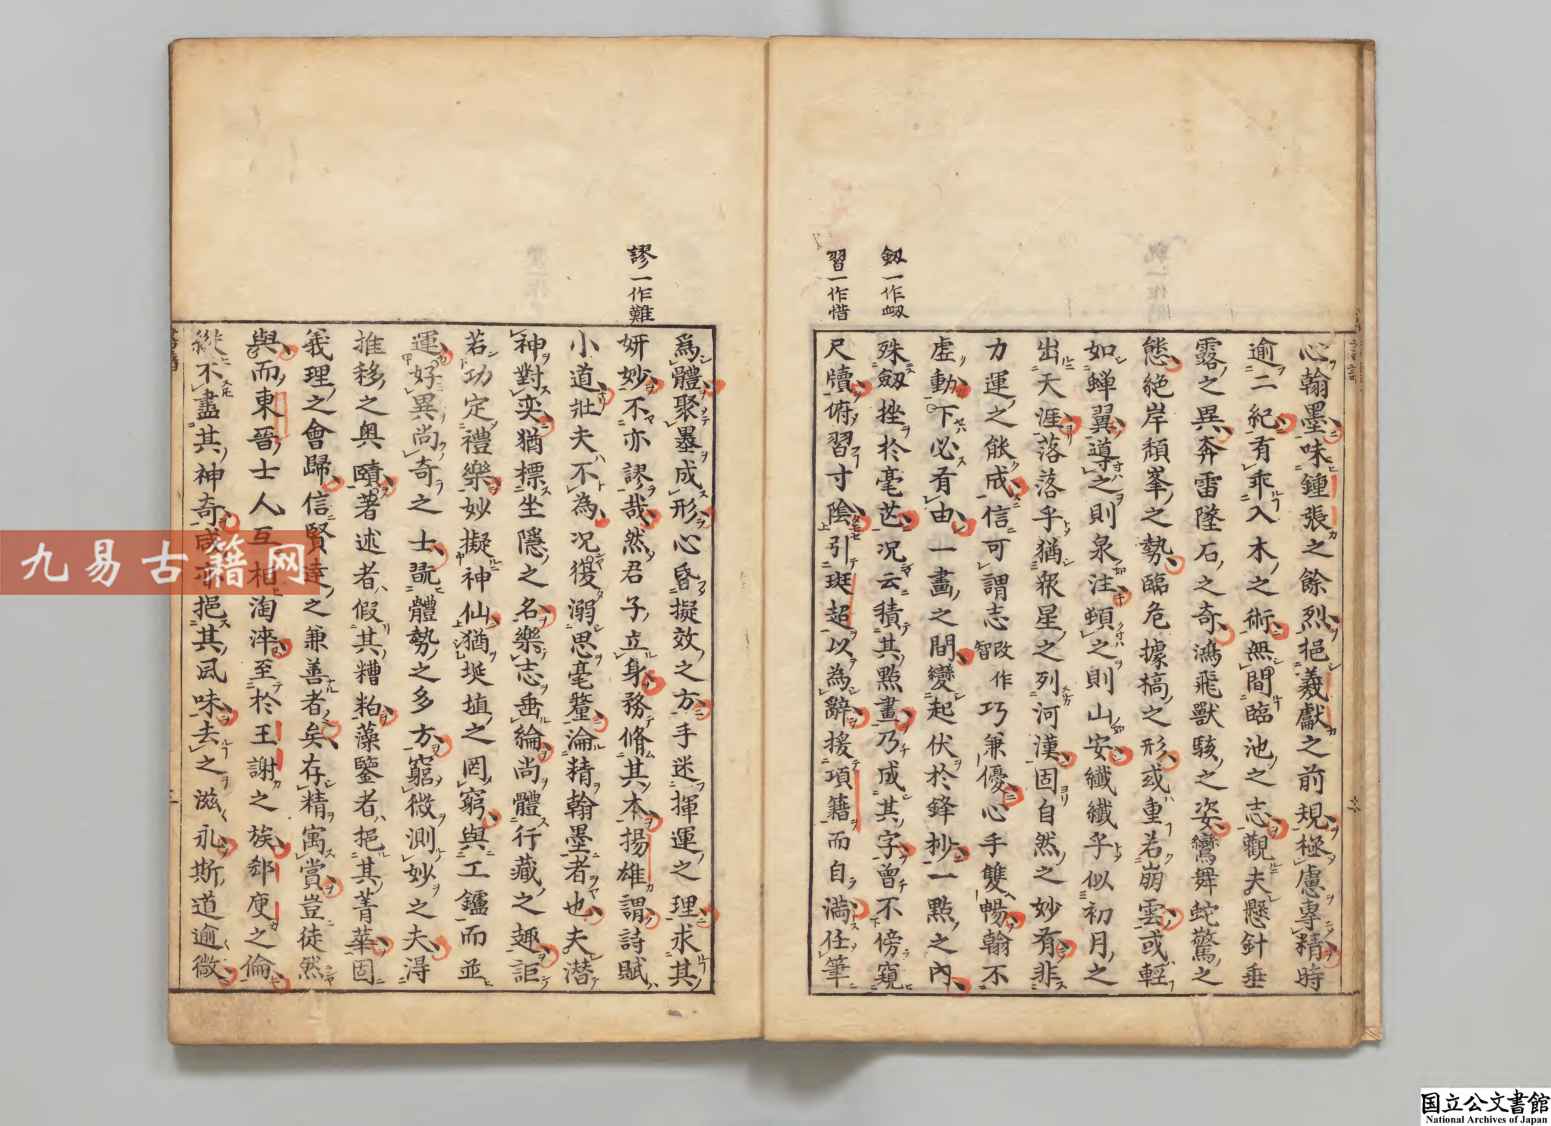 釼一作衂
習一作惜
心翰墨味鍾張之餘烈挹羲獻之前規極慮專精時
逾二紀有乖入木之術無間臨池之志觀夫懸針垂
露之異奔雷墜石之奇鴻飛獸駭之姿鸞舞蛇驚之
態絶岸頹峯之勢臨危據槁之形或重若崩雲或輕
如蟬翼導之則泉注頓之則山安纖纖乎似初月之
出天涯落落乎猶衆星之列河漢固自然之妙有非
力運之能成信可謂志智改作巧兼優心手雙暢翰不
虛動下必有由一畫之間變起伏於鋒抄一點之內
殊釼挫於毫芒况云積其點畫乃成其字曽不傍窺
尺牘俯習寸陰引班超以為辭援項籍而自滿任筆
謬一作難
爲體聚墨成形心昏擬效之方手迷揮運之理求其
妍妙不亦謬哉然君子立身務脩其本揚雄謂詩賦
小道壯夫不為况復溺思毫釐淪精翰墨者也夫潛
神對奕猶標坐隱之名樂志垂綸尚體行藏之趣詎
若功定禮樂妙擬神仙猶埏埴之罔窮與工鑪而並
運好異尚奇之士翫體勢之多方窮微測妙之夫得
推移之奥賾著述者假其糟粕藻鑒者挹其菁華固
義理之會歸信賢達之兼善者矣存精寓賞豈徒然
與而東晉士人互相淘淬至於王謝之族郗庾之倫
縱不盡其神奇咸亦挹其風味去之滋永斯道逾微
九易古籍网
国立公文書館
National Archives of Japan